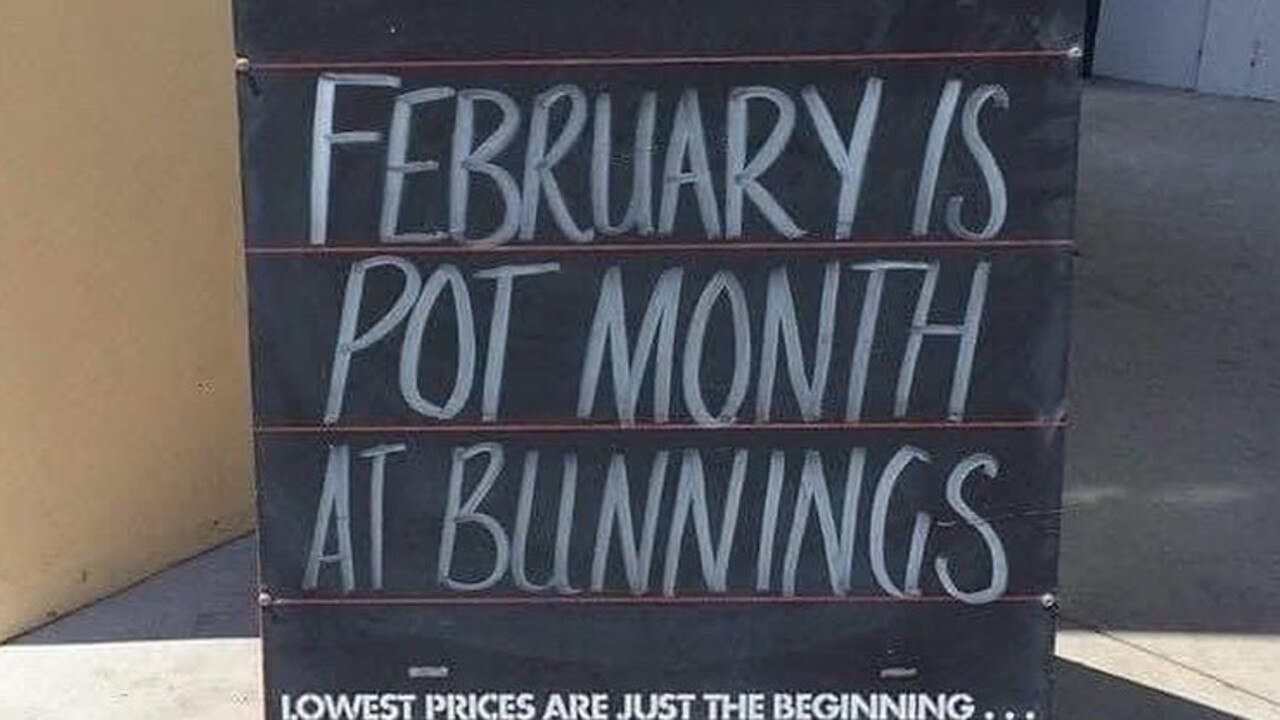 FEBRUARY IS
POT MONTH
AT BUNNINGS
LOWEST PRICES ARE JUST THE BEGINNING . . .